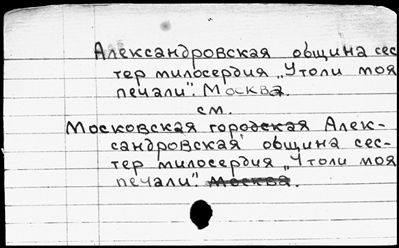 Александровская община сес-
тер милосердия „Утоли моя
печали". Москва.
см.
Московская городская Алек-
сандровская община сес-
тер милосердия „Утоли моя
печали". Москва.